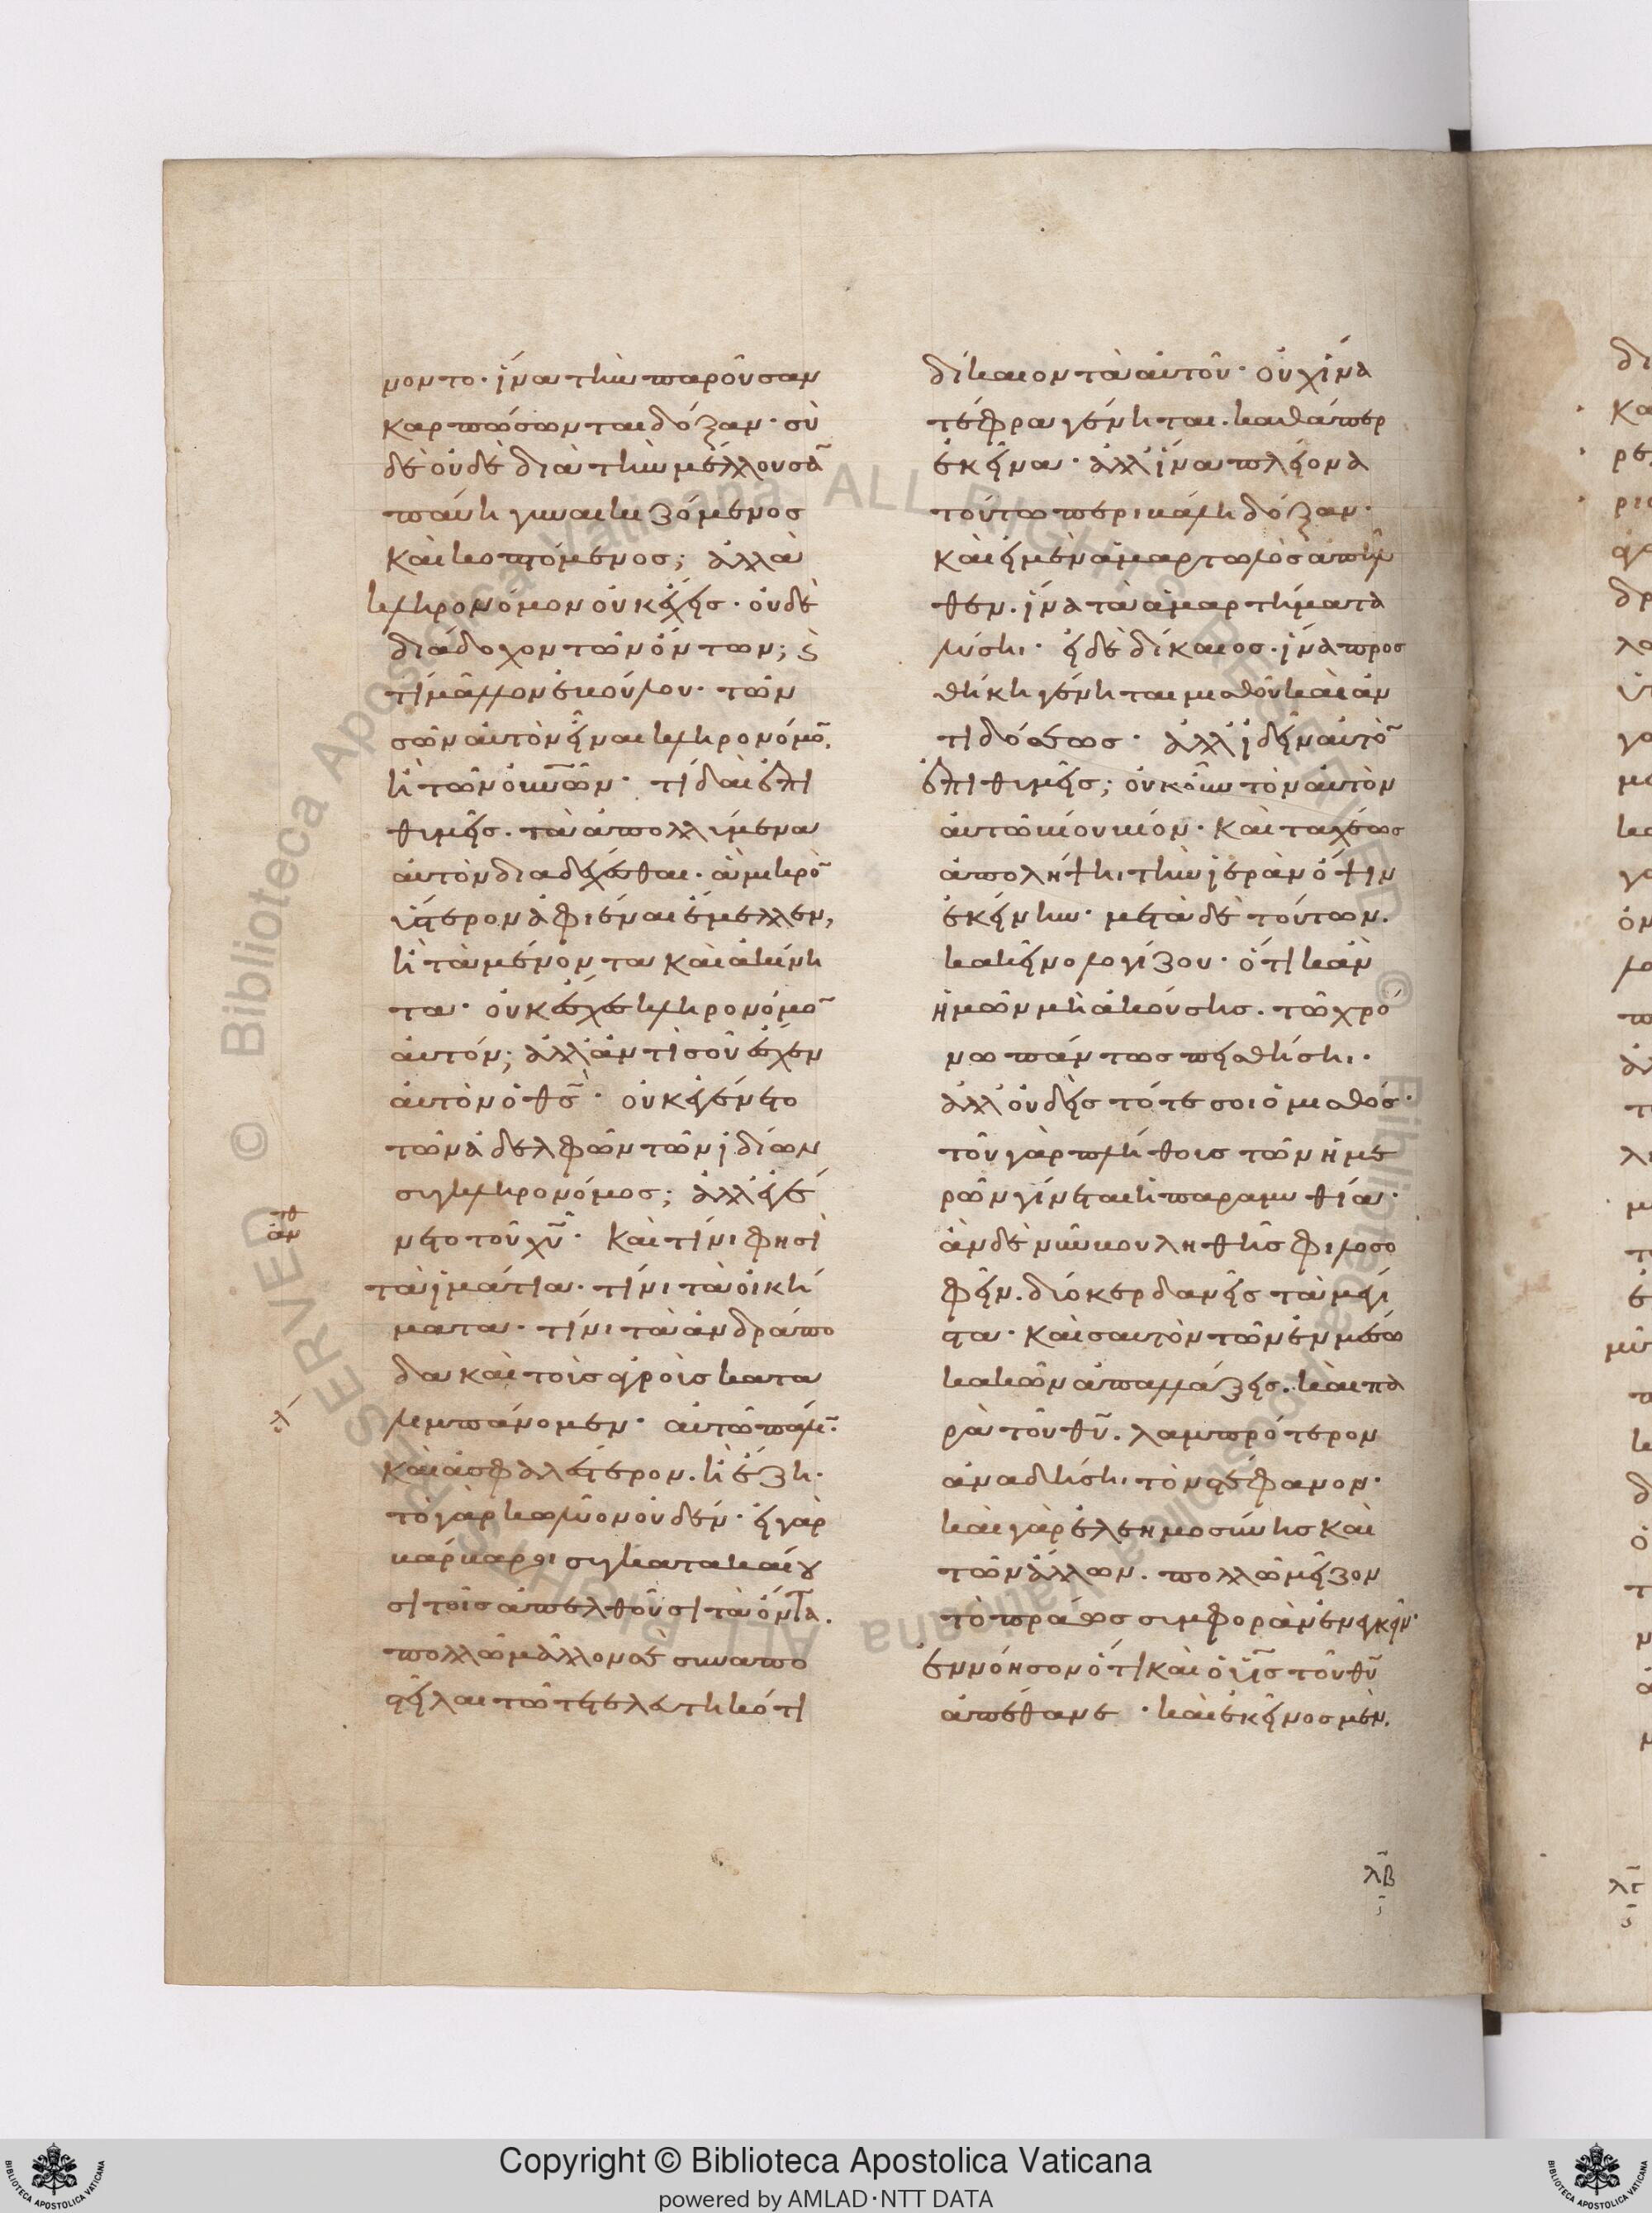 νοντο· ἵνα τὴν παροῦσαν
καρπώσωνται δόξαν· σὺ
δὲ οὐδὲ διὰ τὴν μέλλουσᾱ
παύη γυναικιζόμενος
καὶ κοπτόμενος; ἀλλὰ
κληρονόμον οὐκ ἔχεις· οὐδὲ
διάδοχον τῶν ὄντων; ϛ̀
τί μᾶλλον ἐβούλου· τῶν
σῶν αὐτὸν εἶναι κληρονόμο̄,
ἢ τῶν οὐν͞ων· τί δαὶ ἐπι
θυμεῖς· τὰ ἀπολλύμενα
αὐτὸν διαδέχεσθαι· ἃ μικρο̄
ὕστερον ἀφιέναι ἔμελλεν,
ἢ τὰ μένοντα καὶ ἀκίνη
τα· οὐκ ἔσχες κληρονόμο̄
αὐτόν; ἀλλ' ἀντὶ σοῦ ἔσχεν
αὐτὸν ὁ θ̄ς̄· οὐκ ἐγένετο
τῶν ἀδελφῶν τῶν ἰδίων
συγκληρονόμος; ἀλλ' ἐγέ
νετο τοῦ χῡ· καὶ τίνι φησὶ
τὰ ἱμάτια· τίνι τὰ οἰκή
ματα· τίνι τὰ ἀνδράπο
δα καὶ τοὺς ἀγροὺς κατα
λιμπάνομεν· αὐτῶ πάλῑ·
καὶ ἀσφαλέστερον· ἢ ἔζη·
τὸ γὰρ κωλῦον οὐδέν· εἰ γὰρ
βάρβαροι συγκατακαίου
σι τοῖς ἀπελθοῦσι τὰ ὄντα·
πολλῶ μᾶλλον σὲ συναπο
στεῖλαι τῶ τετελευτηκότι
δίκαιον τὰ αὐτοῦ· οὐχ ἵνα
τέφρα γένηται· καθάπερ
ἐκεῖνα· ἀλλ' ἵνα πλείονα
τούτω περιβάλη δόξαν·
καὶ εἰ μὲν ἁμαρτωλὸς ἀπῆλ
θεν· ἵνα τὰ ἁμαρτήματα
λύσηι· εἰ δὲ δίκαιος· ἵνα προσ
θήκη γένηται μισθοῦ καὶ ἀν
τιδόσεως· ἀλλ' ἰδεῖν αὐτὸ̄
ἐπιθυμεῖς; οὐκοῦν τὸν αὐτὸν
αὐτῶ βίου βίον· καὶ ταχέως
ἀπολήψηι τὴν ἱερὰν ὄψιν
ἐκείνην· μετὰ δὲ τούτων·
κἀκεῖνο λογίζου· ὅτι κἂν
ἡμῶν μὴ ἀκούσης· τῶ χρό
νω πάντως πεισθήσηι·
ἀλλ' οὐδεὶς τότε σοι ὁ μισθός·
τοῦ γὰρ πλήθους τῶν ἡμε
ρῶν γίνεται ἡ παραμυθία·
ἂν δὲ νῦν βουληθῆς φιλοσο
φεῖν· δύο κερδανεῖς τὰ μέγι
στα· καὶ σαυτὸν τῶν ἐν μέσω
κακῶν ἀπαλλάξεις· καὶ πα
ρὰ τοῦ θῡ· λαμπρότερον
ἀναδήσηι τὸν στέφανον·
καὶ γὰρ ἐλεημοσύνης καὶ
τῶν ἄλλων· πολλῶ μεῖζον
τὸ πράως συμφορὰν ἐνεγκεῖν·
ἐννόησον ὅτι καὶ ὁ ῡς̄ τοῦ θῡ
ἀπέθανε· καὶ ἐκεῖνος μὲν·
λβ̄
Copyright © Biblioteca Apostolica Vaticana
powered by AMLAD·NTT DATA